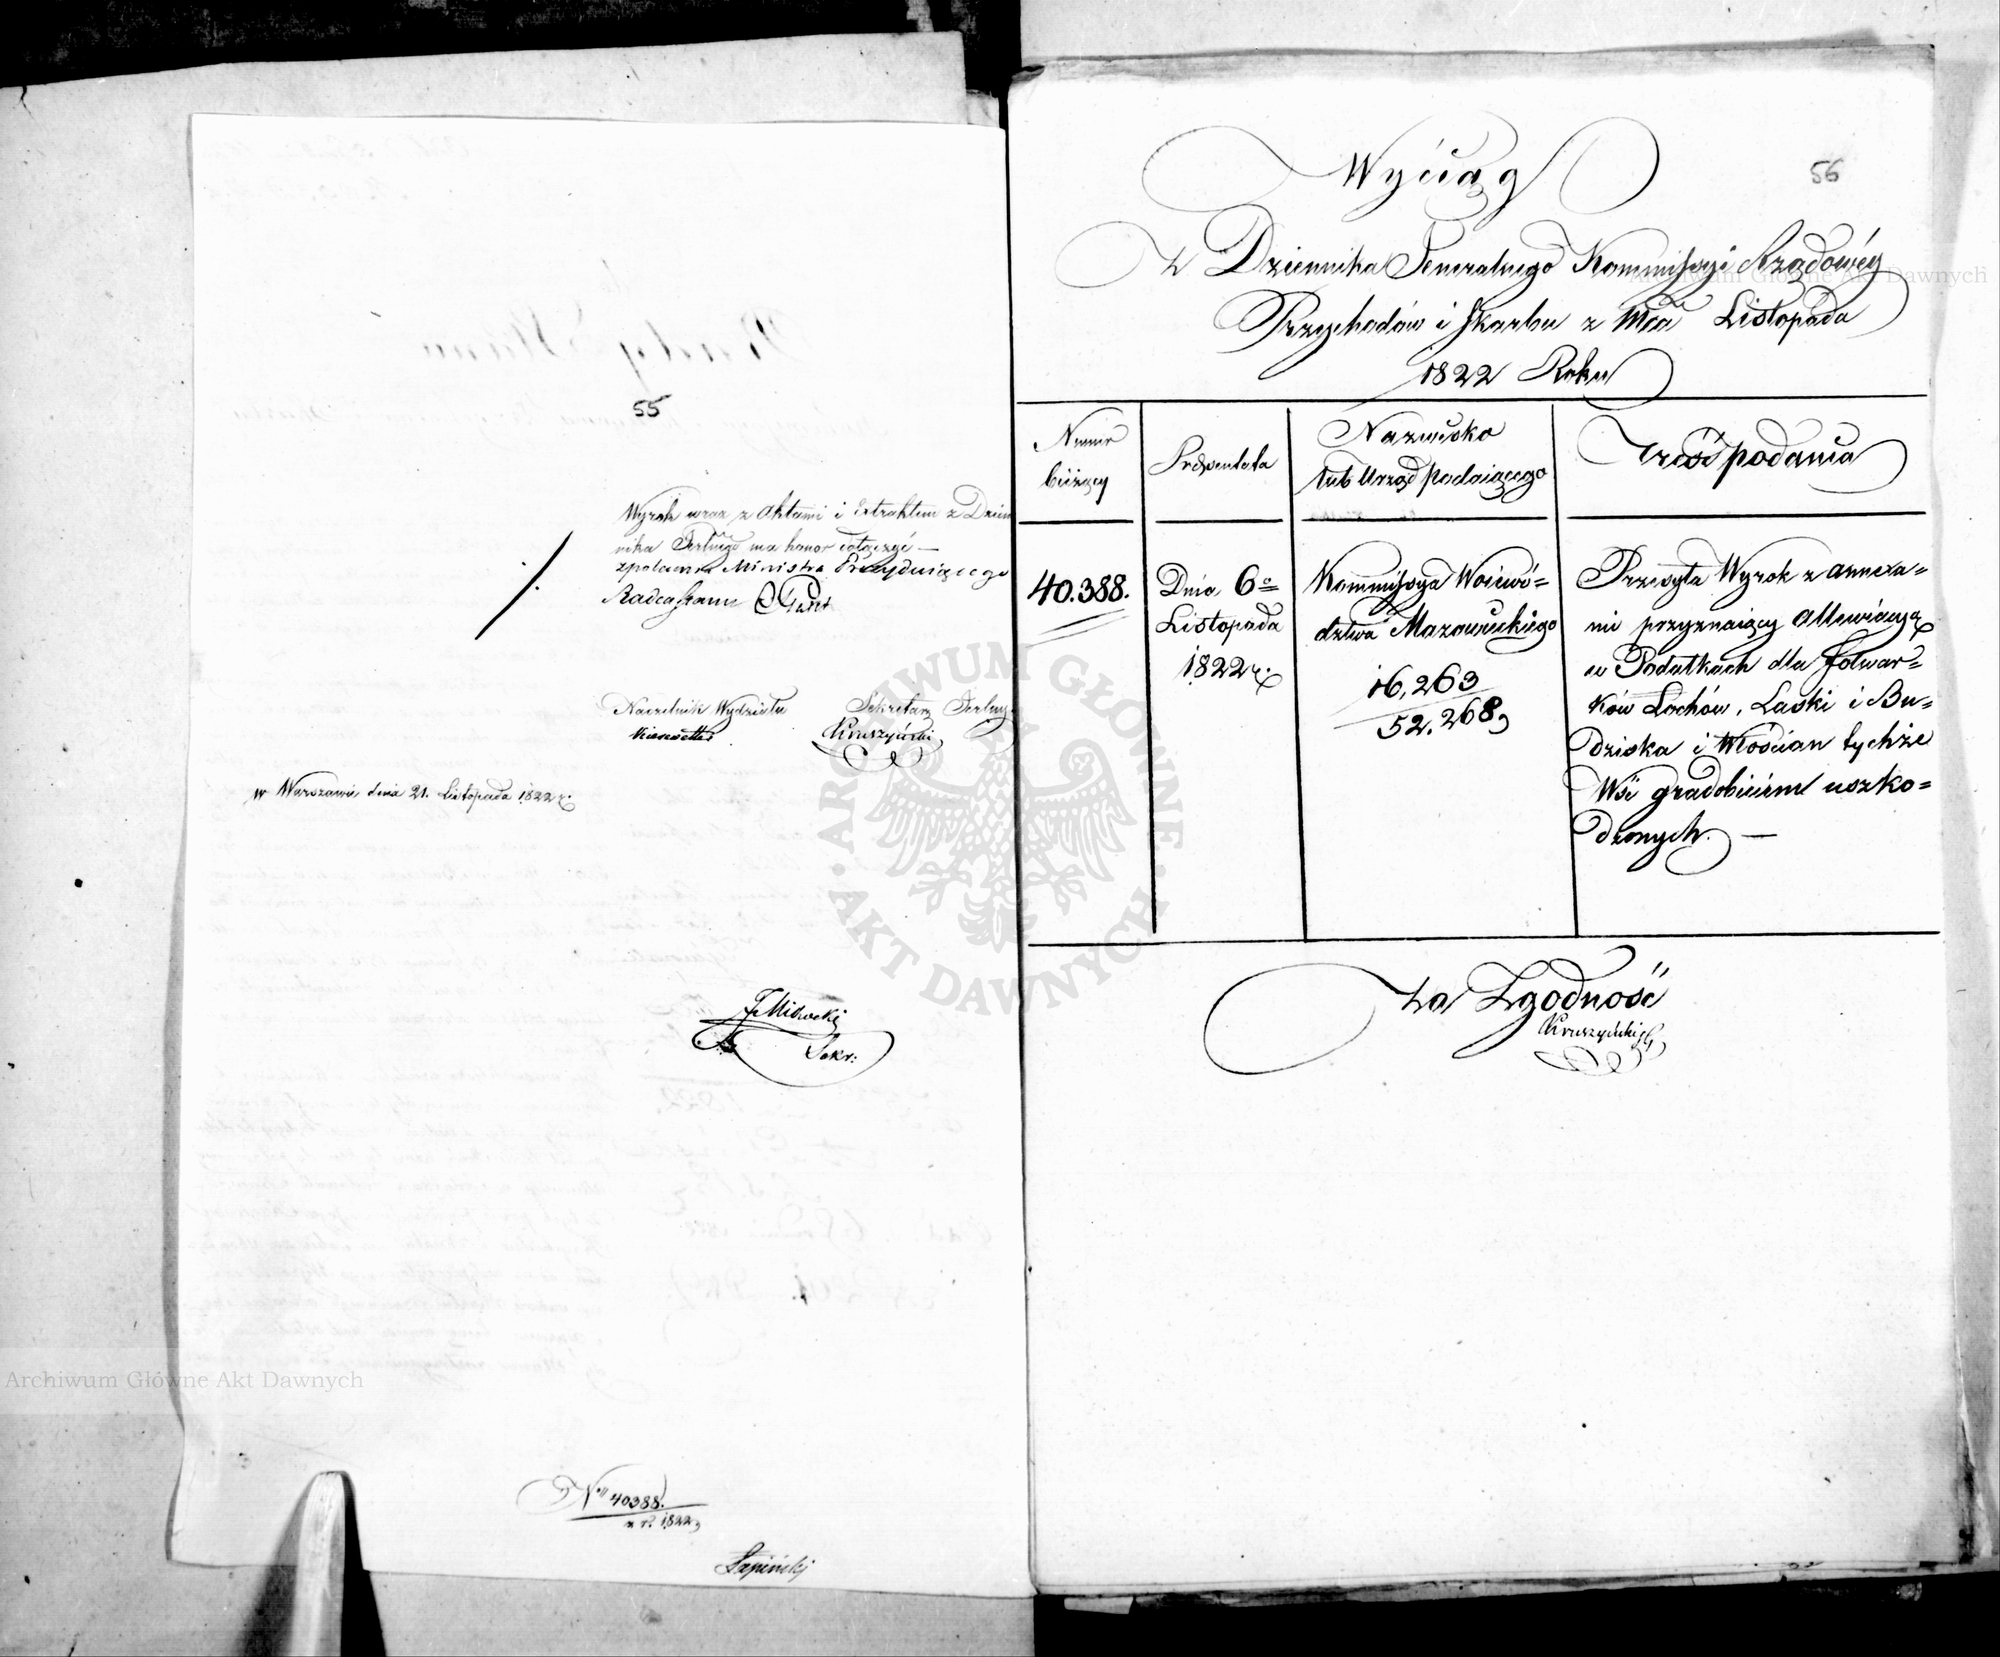 55
Wyrok wraz z Aktami i Extraktem z Dzien
nika Jerlnego ma honor dołączyć —
z polecenia Ministra Prezyduiącego
Radca Stanu
Naczelnik Wydziału Sekretarz Jerlny
Kruszyński
w Warszawie dnia 21. Listopada 1822 r.
Sekr:
N° 40388.
z r. 1822
Łapiński
56
Wyciąg
z Dziennika Jeneralnego Kommissyi Rządowéy
Przychodów i Skarbu z Mca Listopada
1822 Roku
Numer
bieżący
Prezentata
Nazwisko
lub Urząd podaiącego
Treść podania
40.388.
Dnia 6°
Listopada
1822 r.
Kommissya Woiewó=
dztwa Mazowieckiego
16,263
52.268
Przesyła Wyrok z annexa=
mi przyznaiący Allewiacyą
w Podatkach dla folwar=
ków Lochów, Laski i Bu=
dziska i Włościan tychże
Wsi gradobiciem uszko=
dzonych. —
Za Zgodność
Kruszyński
ARCHIWUM GŁÓWNE AKT DAWNYCH
Archiwum Główne Akt Dawnych
Archiwum Główne Akt Dawnych